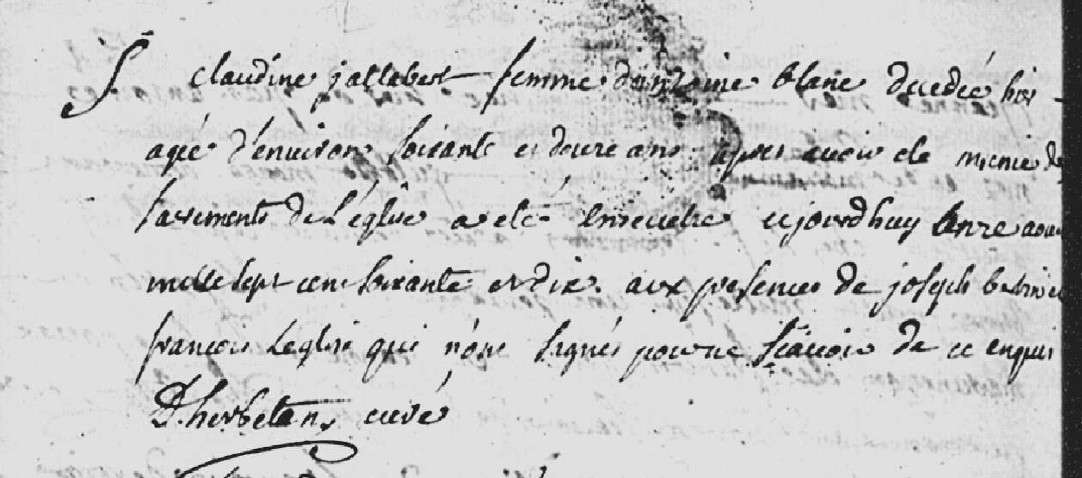 S. claudine jallebert femme d'antoine blanc decedée hier
agée d'environ soixante et douze ans apres avoir ete munie de
sacrements de L'église a eté enseuelie cejourdhuy onze aoust
mille sept cent soixante et dix aux presences de joseph
françois Leglise qui n'ont signés pour ne scavoir de ce enquis
D'herbetans curé